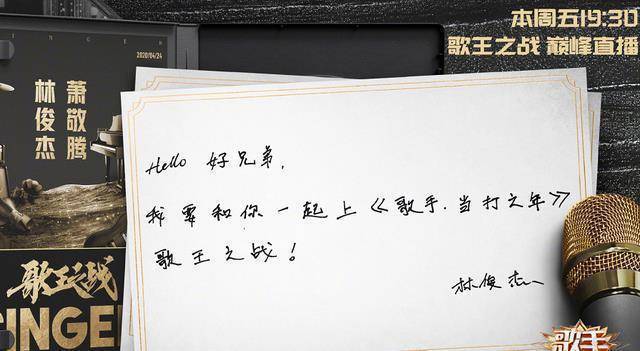 本周五19:30
歌王之战 巅峰直播
SINGER
2020/04/24
萧敬腾
林俊杰
Hello 好兄弟,
我要和你一起上《歌手.当打之年》
歌王之战!
林俊杰
歌王之战
SINGE
歌手